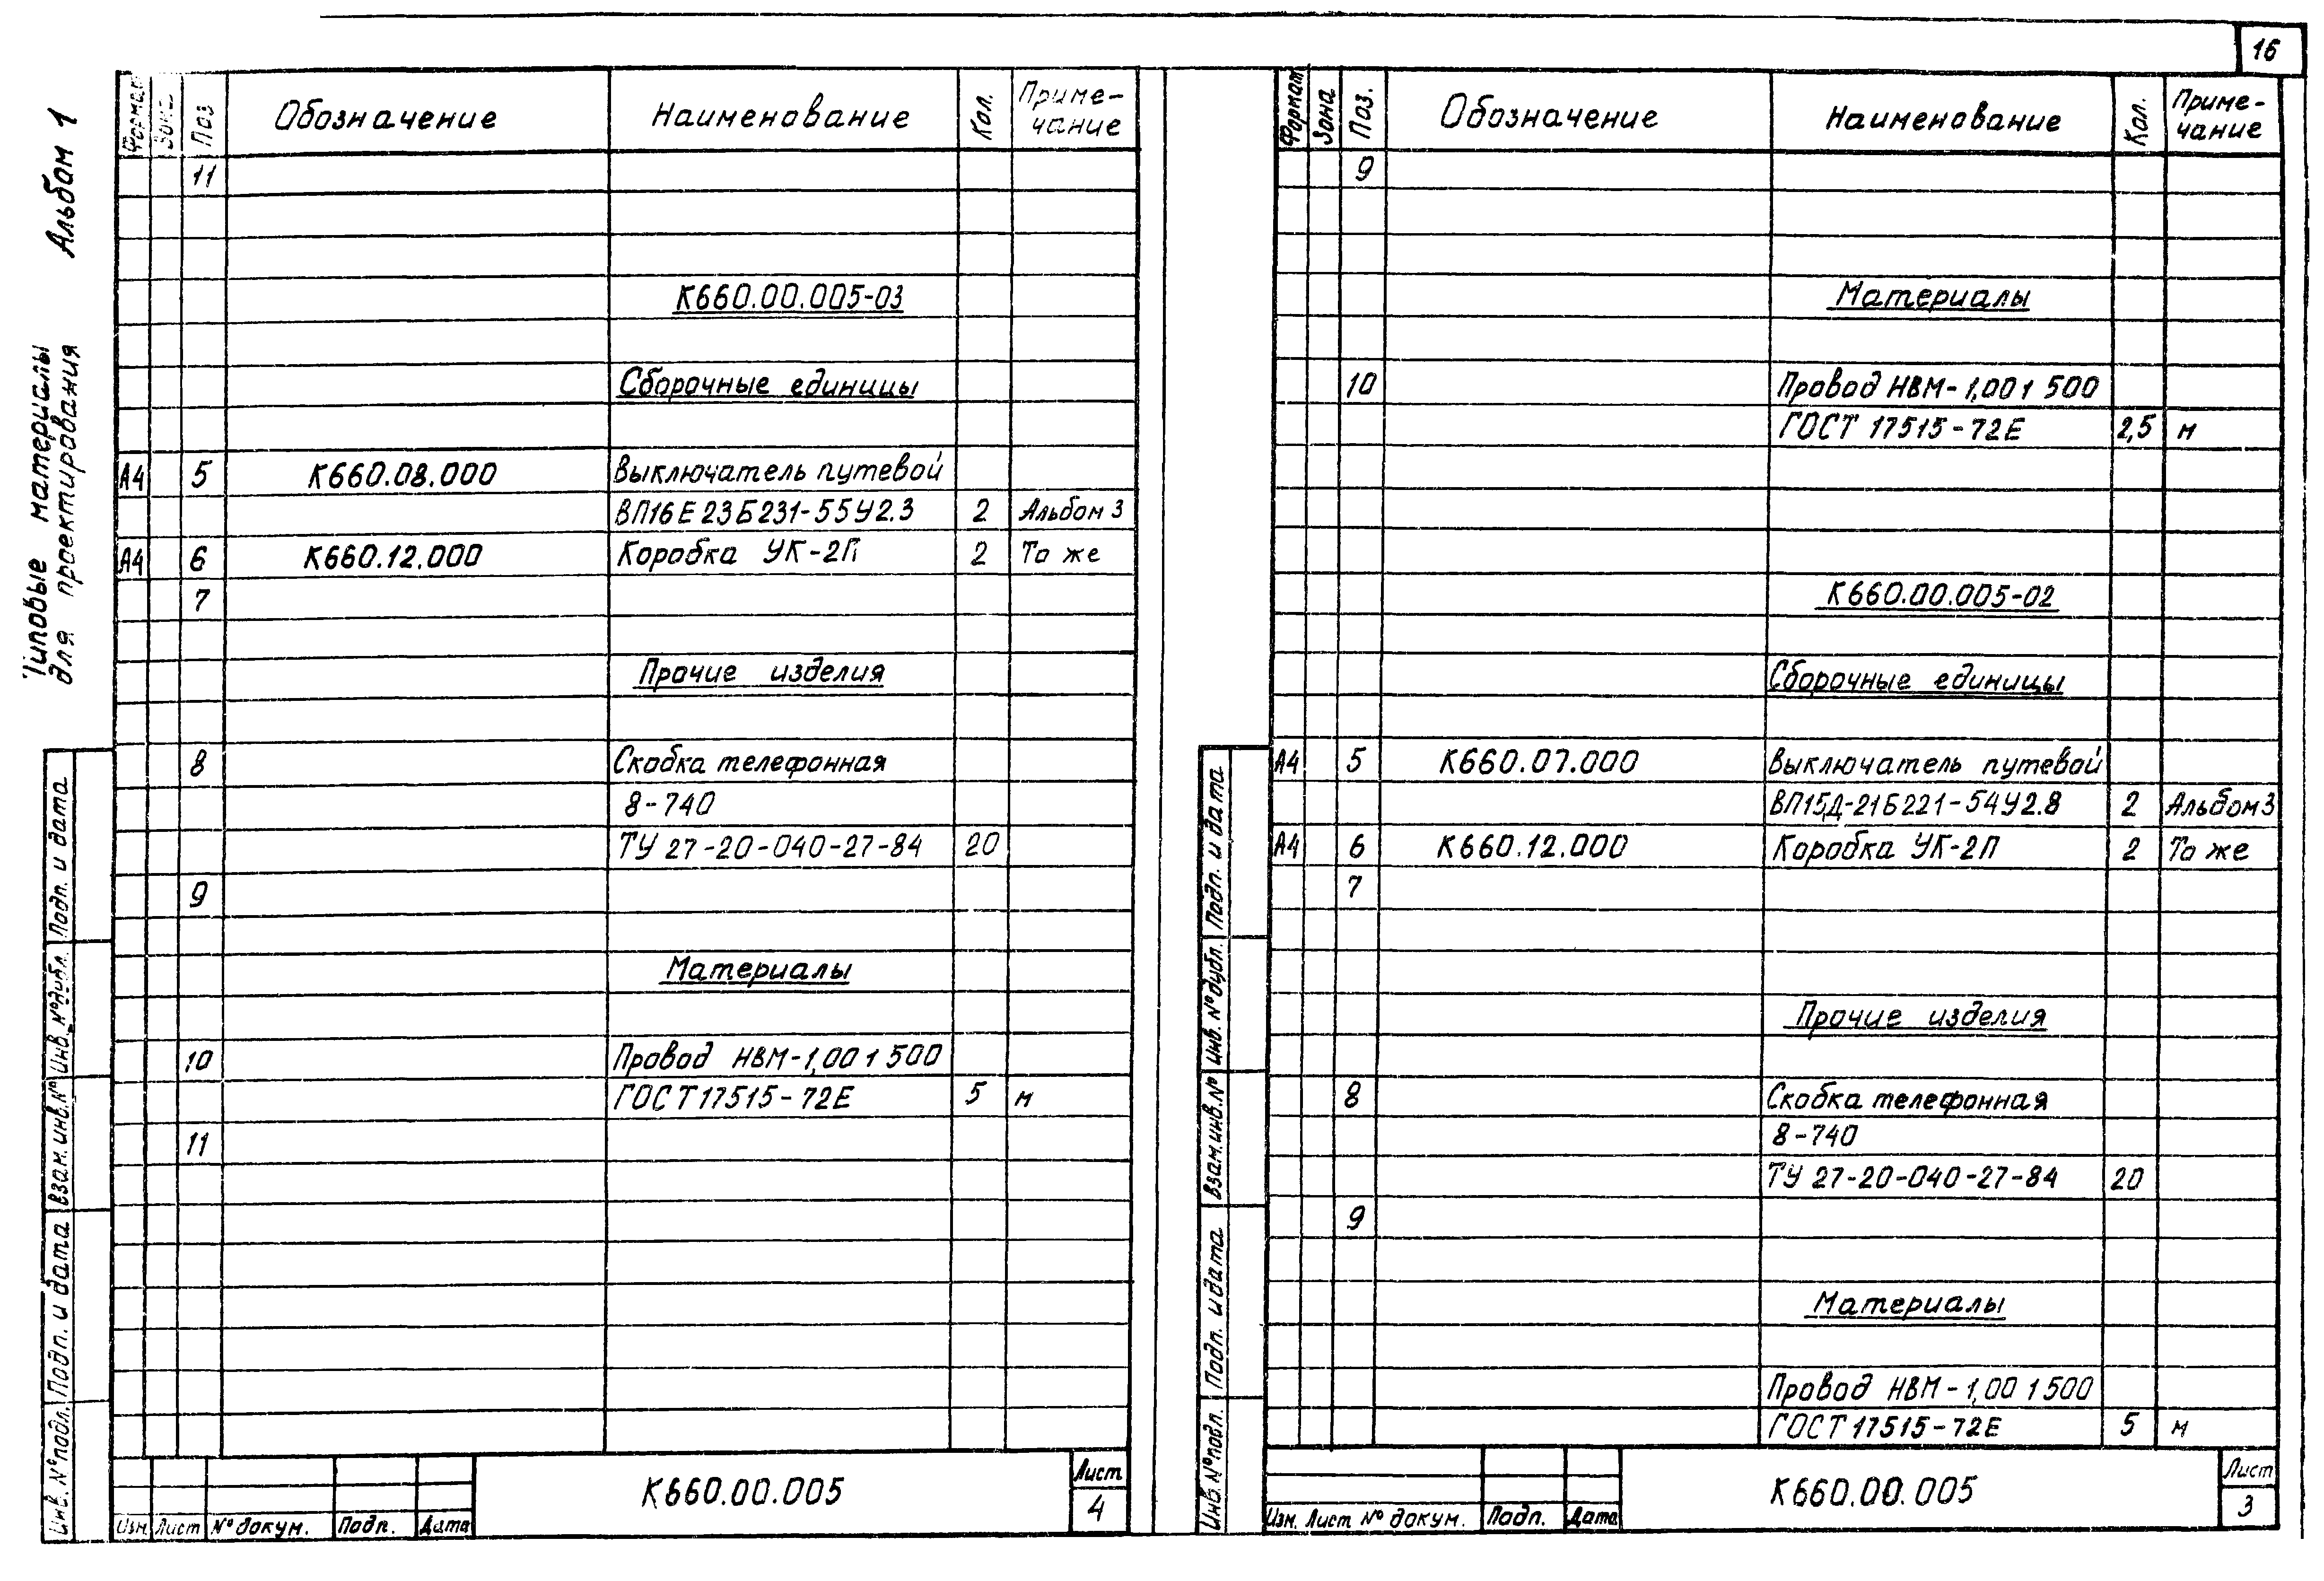 16
Альбом 1
Типовые материалы
для проектирования
Формат Зона Поз Обозначение Наименование Кол. Приме-
чание
11
К660.00.005-03
Сборочные единицы
А4 5 К660.08.000 Выключатель путевой
ВП16Е23Б231-55У2.3 2 Альбом 3
А4 6 К660.12.000 Коробка УК-2П 2 То же
7
Прочие изделия
8 Скобка телефонная
8-740
ТУ 27-20-040-27-84 20
9
Материалы
10 Провод НВМ-1,00 1 500
ГОСТ 17515-72Е 5 м
11
Инв. № подл. Подп. и дата Взам. инв. № Инв. № дубл. Подп. и дата
Изм Лист № докум. Подп. Дата
К660.00.005
Лист
4
Формат Зона Поз. Обозначение Наименование Кол. Приме-
чание
9
Материалы
10 Провод НВМ-1,00 1 500
ГОСТ 17515-72Е 2,5 м
К660.00.005-02
Сборочные единицы
А4 5 К660.07.000 Выключатель путевой
ВП15Д-21Б221-54У2.8 2 Альбом 3
А4 6 К660.12.000 Коробка УК-2П 2 То же
7
Прочие изделия
8 Скобка телефонная
8-740
ТУ 27-20-040-27-84 20
9
Материалы
Провод НВМ-1,00 1 500
ГОСТ 17515-72Е 5 м
Инв. № подл. Подп. и дата Взам. инв. № Инв. № дубл. Подп. и дата
Изм. Лист № докум. Подп. Дата
К660.00.005
Лист
3